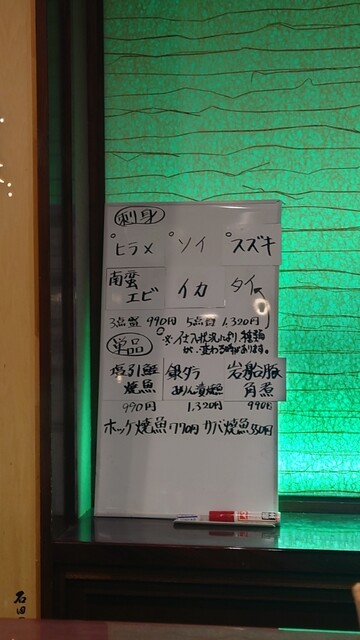 刺身
ヒラメ ソイ スズキ
南蛮エビ イカ タイ
3点盛 990円 5点盛 1,320円
※仕入状況により、種類
が変わる時があります。
単品
塩引鮭 銀ダラ 岩船豚
焼魚 みりん漬焼 角煮
990円 1,320円 990円
ホッケ焼魚770円 サバ焼魚550円
石田